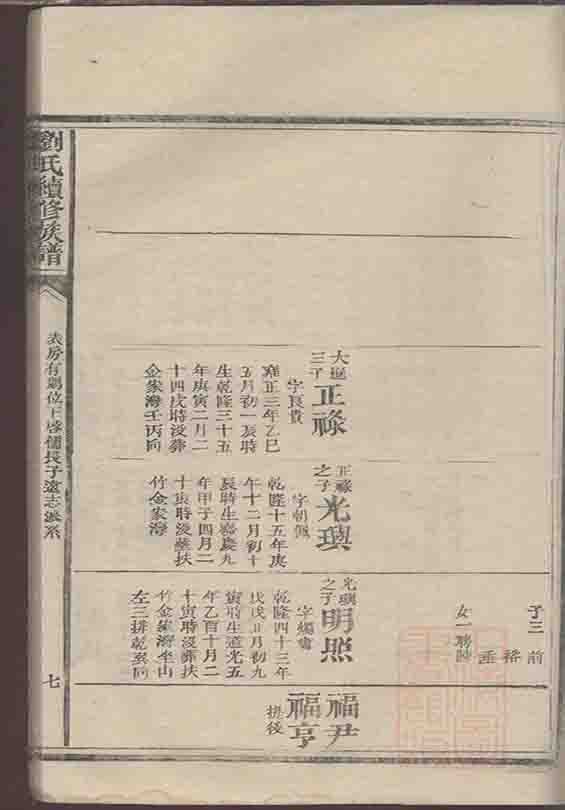 子三
前
裕
垂
女一
大
三子
正祿
字良貴
雍正三年乙巳
五月初一亥時
生乾隆三十五
年庚寅二月二
十四戌時沒葬
金家灣壬丙向
正祿
之子
光璵
字朝佩
乾隆十五年庚
午十二月初十
辰時生嘉慶九
年甲子四月二
十寅時沒葬扶
竹金家灣
光璵
之子
明照
字燭
乾隆四十三年
戊戌正月初九
寅時生道光五
年乙酉十月二
十寅時沒葬扶
竹金家灣坐山
左三排乾巽向
福尹
福亨
提後
劉氏續修族譜
長子遠志派系
七